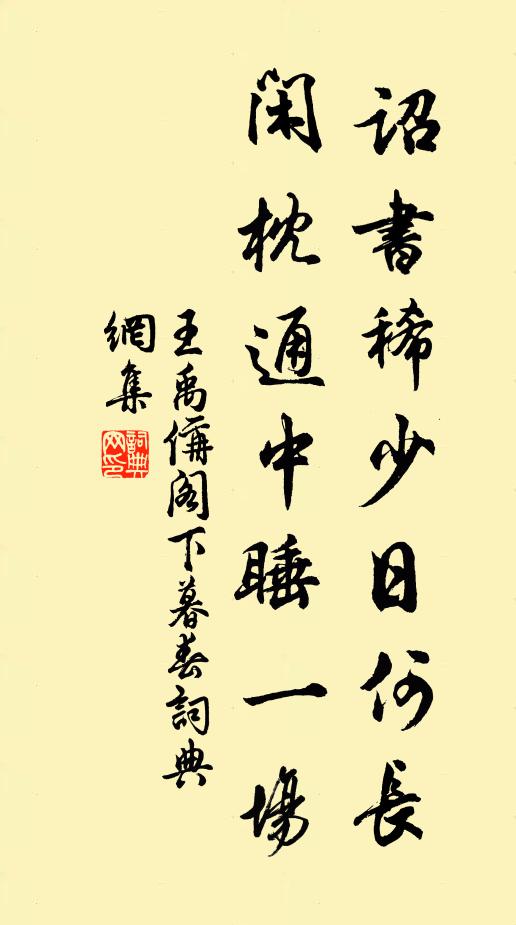 詔書稀少日何長
閑枕通中睡一場
王禹偁閣下暮春詞典
網集
詞典網印